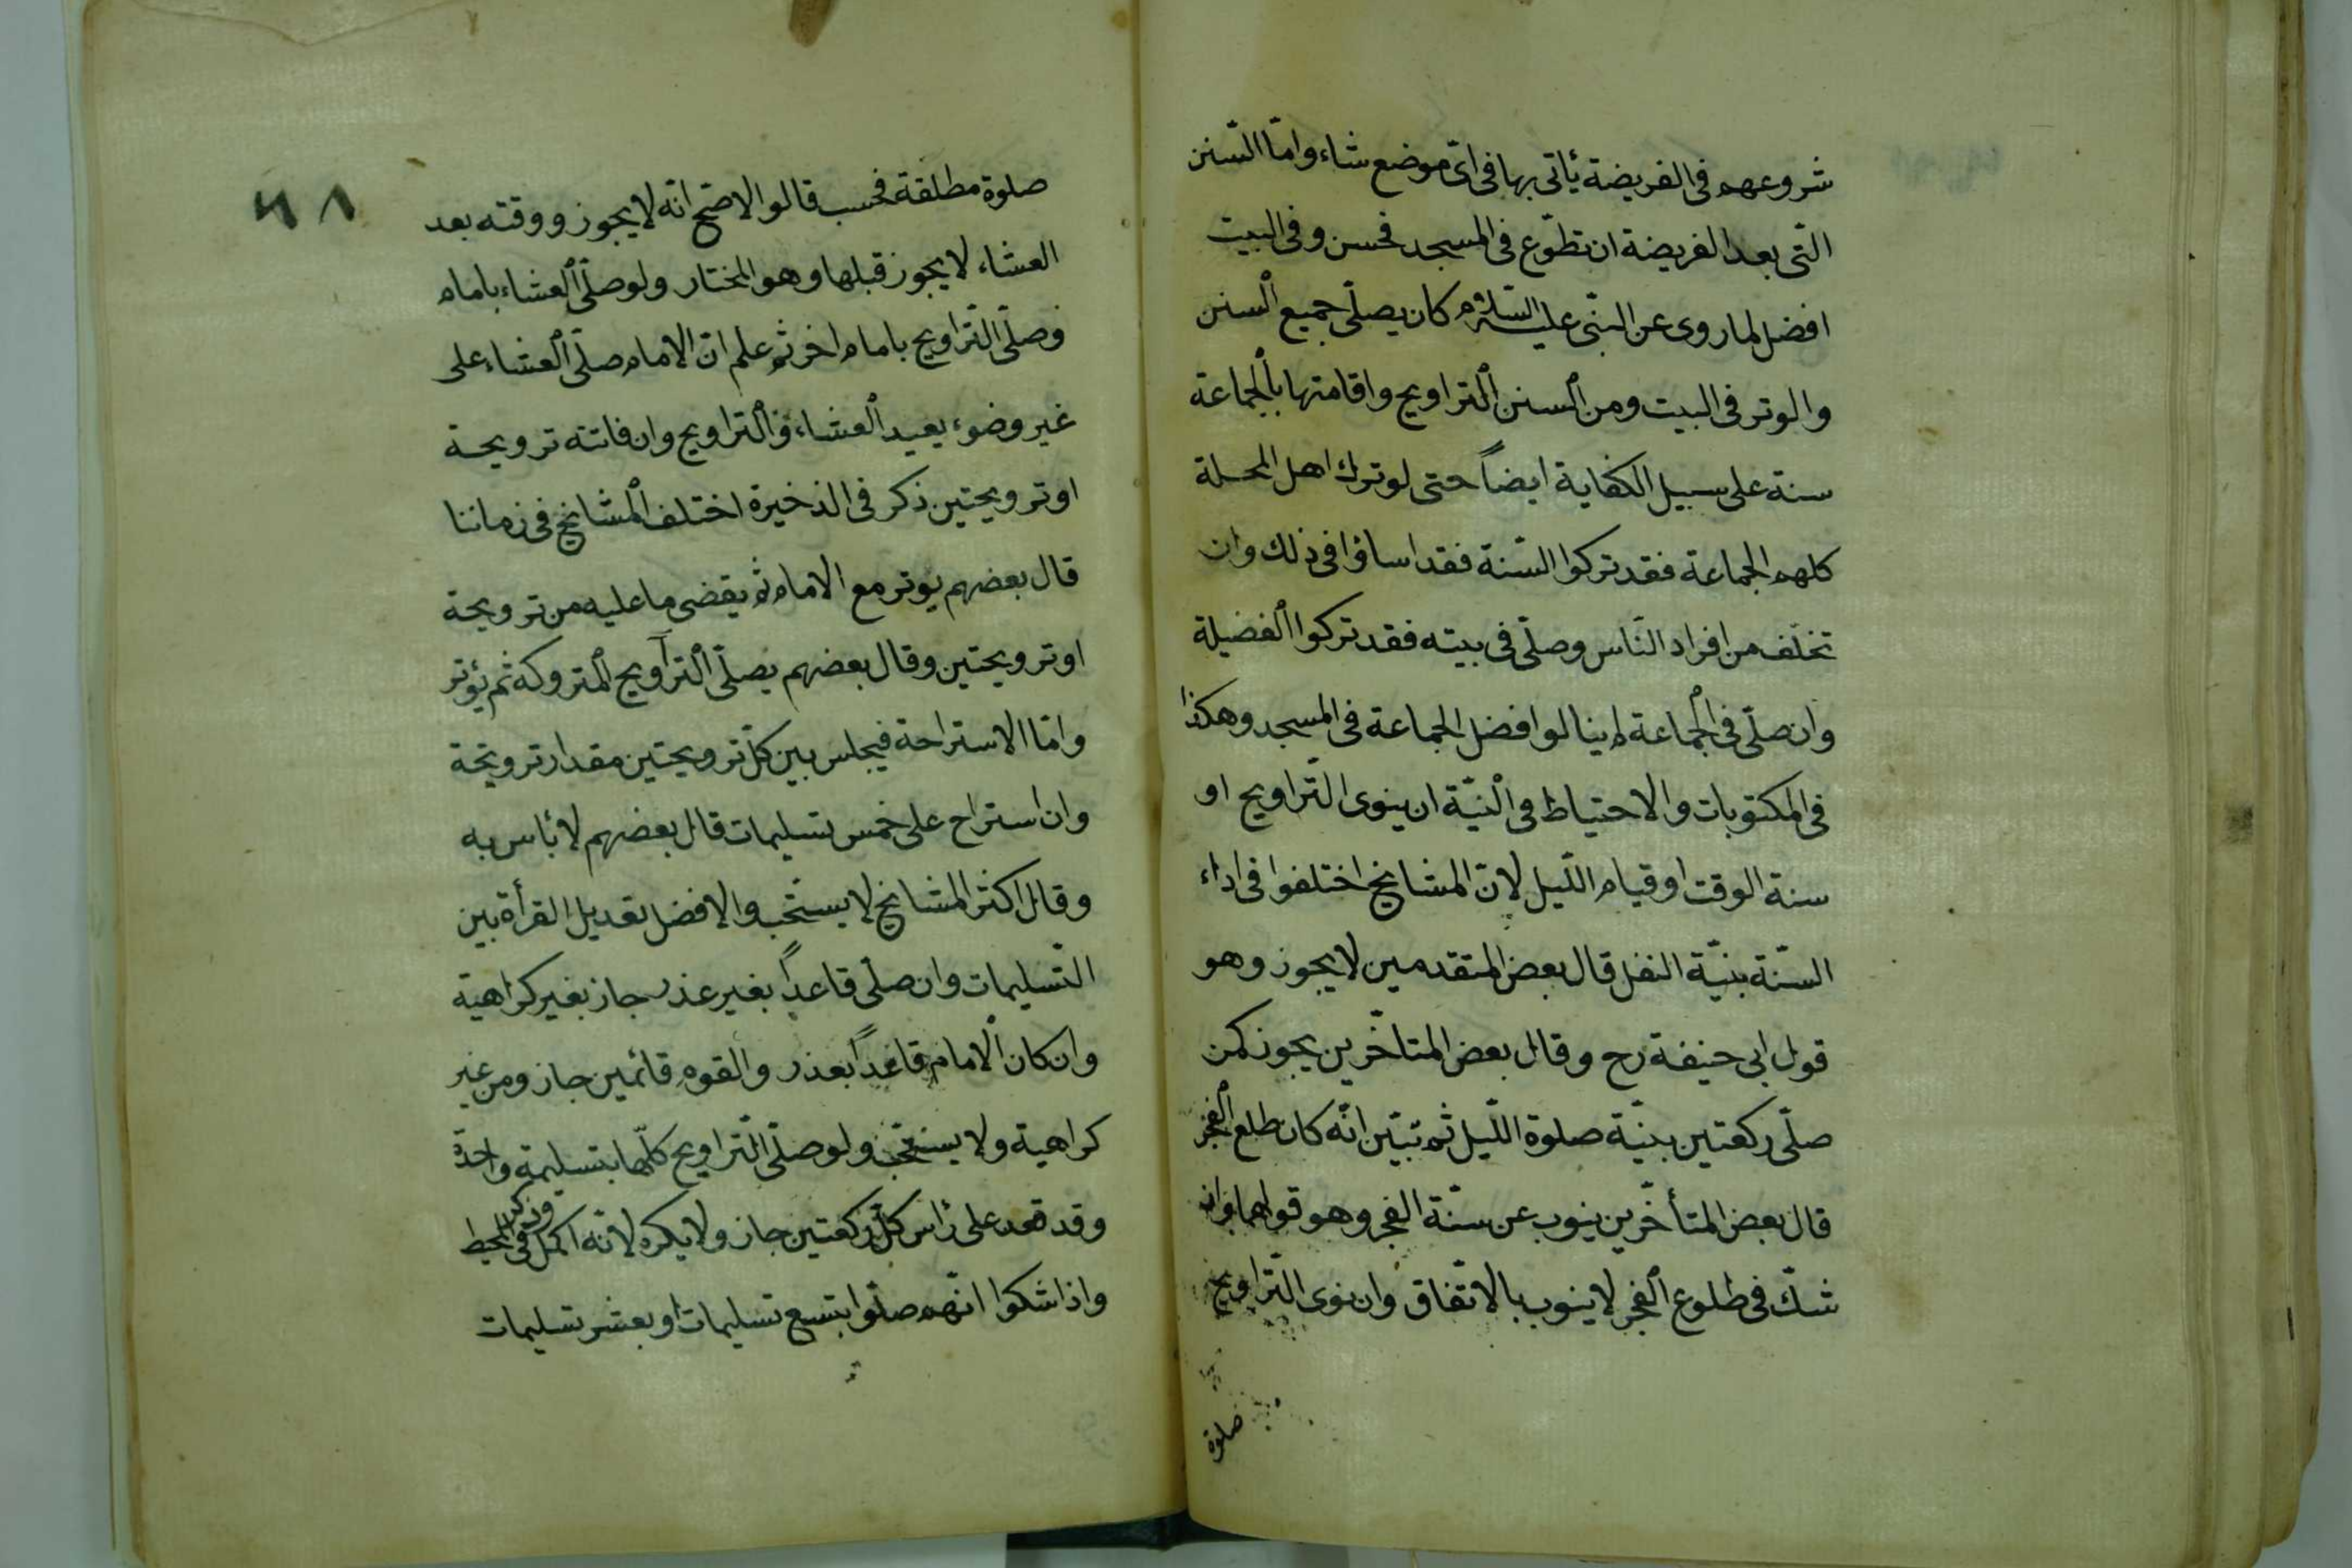 شروعهم فى الفريضة يأتى بها فى اىّ موضع شاء وامّا السّنن
الّتى بعد الفريضة ان تطوّع فى المسجد فحسن وفى البيت
افضل لما روى عن النبّى عليه السّلام كان يصلّى جميع السنن
والوتر فى البيت ومن السنن التراويح واقامتها بالجماعة
سنة على سبيل الكفاية ايضاً حتى لو ترك اهل المحلة
كلهم الجماعة فقد تركوا السّنة فقد اساؤا فى ذلك وان
تخلّف من افراد النّاس وصلّى فى بيته فقد تركوا الفضيلة
وان صلّى فى الجماعة لم ينالوا فضل الجماعة فى المسجد وهكذا
فى المكتوبات والاحتياط فى النيّة ان ينوى التّراويح او
سنة الوقت او قيام اللّيل لانّ المشايخ اختلفوا فى اداء
السنّة بنيّة النفل قال بعض المتقدمين لا يجوز وهو
قول ابى حنيفة رح وقال بعض المتاخّرين يجوز كمن
صلّى ركعتين بنيّة صلوة اللّيل ثم تبيّن انّه كان طلع الفجر
قال بعض المتأخّرين ينوب عن سنّة الفجر وهو قولهما وان
شكّ فى طلوع الفجر لا ينوب بالاتّفاق وان نوى التّراويح
صلوة
٦٨
صلوة مطلقة فحسب قالوا الاصّح انّه لا يجوز ووقته بعد
العشاء لا يجوز قبلها وهو المختار ولو صلّى العشاء بامام
وصلّى التّراويح بامام اخر ثم علم انّ الامام صلّى العشاء على
غير وضوء يعيد العشاء والتراويح وان فاتته ترويحة
او ترويحتين ذكر فى الذخيرة اختلف المشايخ فى زماننا
قال بعضهم يوتر مع الامام ثم يقضى ما عليه من ترويحة
او ترويحتين وقال بعضهم يصلّى التراويح المتروكة ثم يؤتر
وامّا الاستراحة فيجلس بين كلّ ترويحتين مقدار ترويحة
وان استراح على خمس تسليمات قال بعضهم لا بأس به
وقال اكثر المشايخ لا يستحّب والافضل تعديل القرأة بين
التّسليمات وان صلّى قاعداً بغير عذر جاز بغير كراهية
وان كان الامام قاعداً بعذر والقوم قائمين جاز ومن غير
كراهية ولا يستحّب ولو صلّى التّراويح كلّها بتسليمة واحدة
وقد قعد على رأس كلّ ركعتين جاز ولا يكره لانّه اكمل وذكر فى المحيط
واذا شكوا انّهم صلّوا بتسع تسليمات او بعشر تسليمات